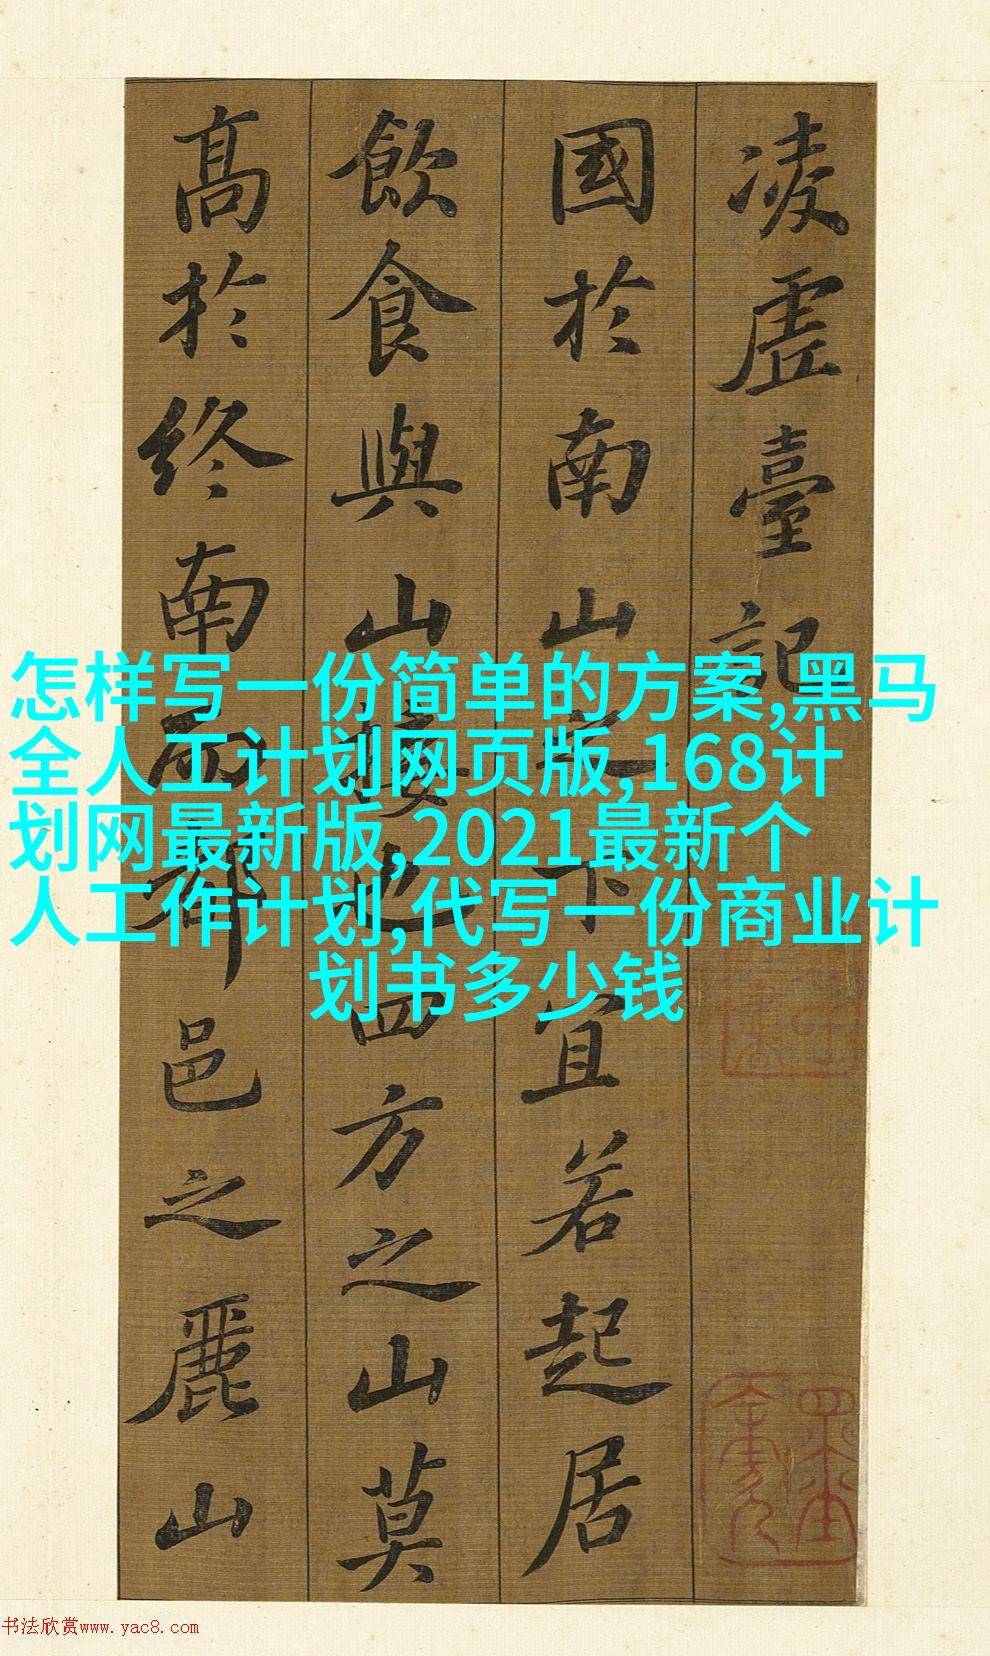 凌虛臺記
國於南山之下宜若起居
飲食與山接也四方之山莫
高於終南而都邑之麗山
怎样写一份简单的方案,黑马
全人工计划网页版,168计
划网最新版,2021最新个
人工作计划,代写一份商业计
划书多少钱
书法欣赏www.yac8.com